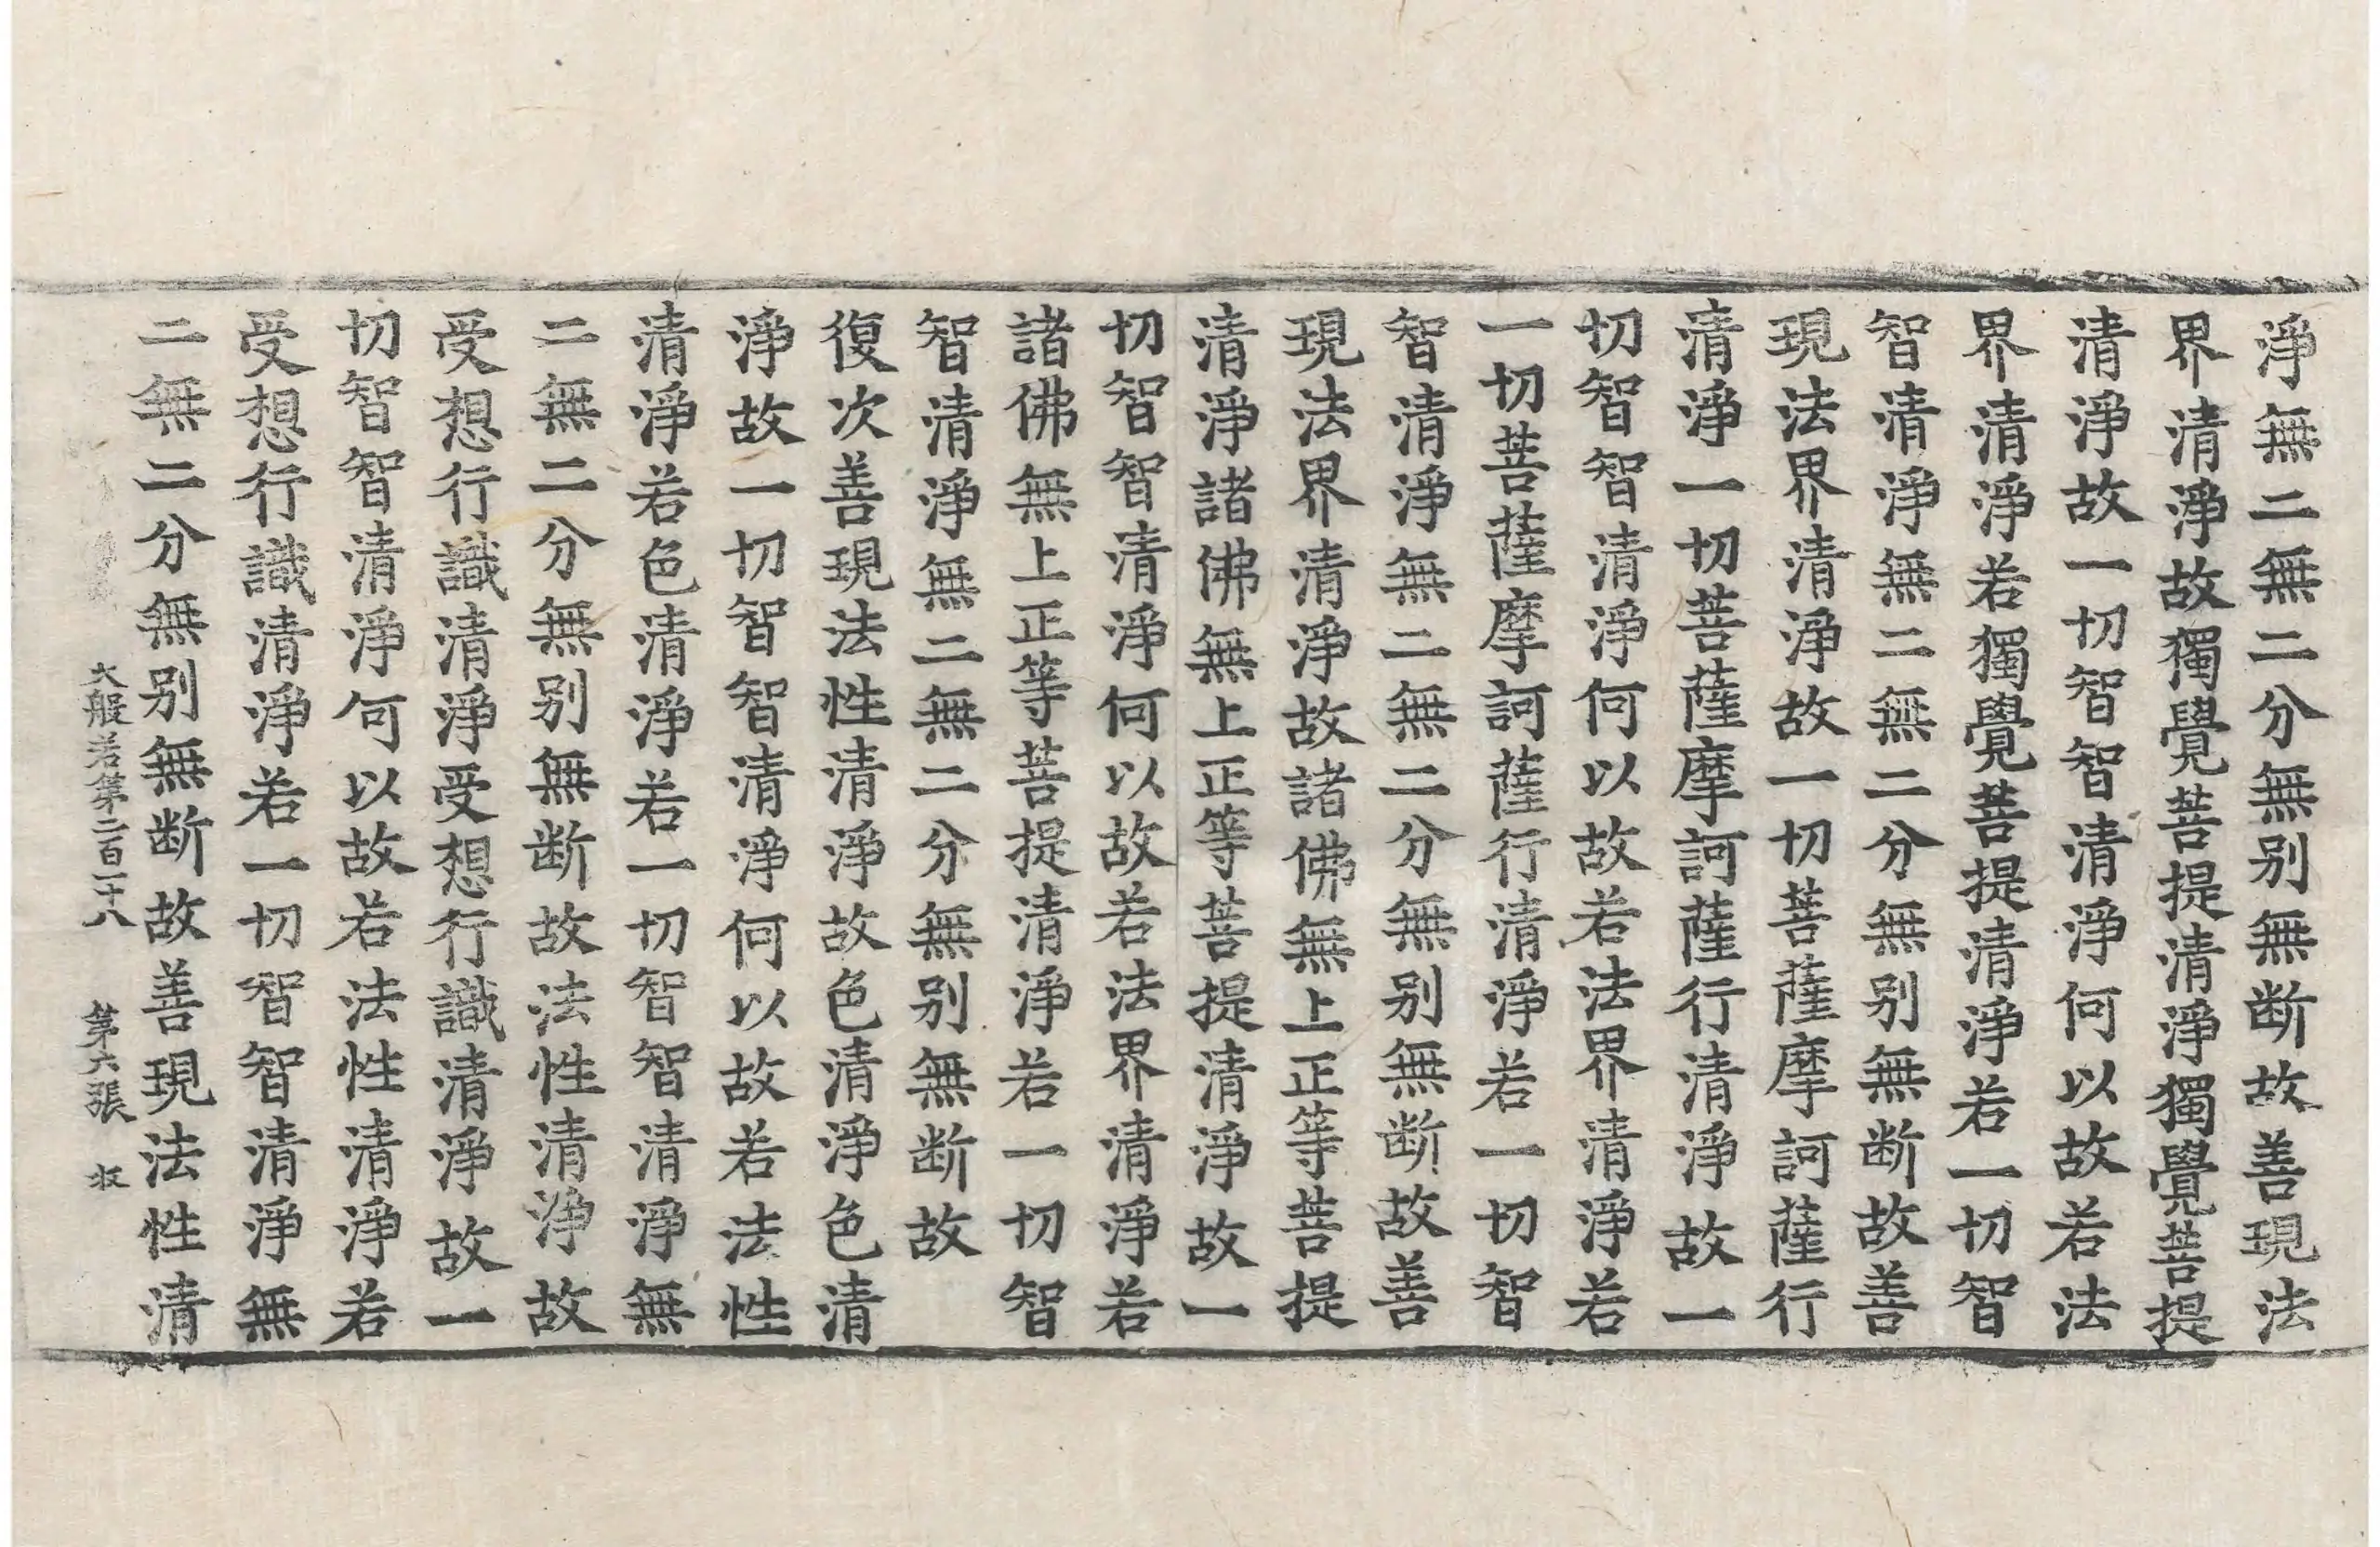 淨無二無二分無别無断故善現法
界清淨故獨覺菩提清淨獨覺菩提
清淨故一切智智清淨何以故若法
界清淨若獨覺菩提清淨若一切智
智清淨無二無二分無别無断故善
現法界清淨故一切菩薩摩訶薩行
清淨一切菩薩摩訶薩行清淨故一
切智智清淨何以故若法界清淨若
一切菩薩摩訶薩行清淨若一切智
智清淨無二無二分無别無断故善
現法界清淨故諸佛無上正等菩提
清淨諸佛無上正等菩提清淨故一
切智智清淨何以故若法界清淨若
諸佛無上正等菩提清淨若一切智
智清淨無二無二分無别無断故
復次善現法性清淨故色清淨色清
淨故一切智智清淨何以故若法性
清淨若色清淨若一切智智清淨無
二無二分無别無断故法性清淨故
受想行識清淨受想行識清淨故一
切智智清淨何以故若法性清淨若
受想行識清淨若一切智智清淨無
二無二分無别無断故善現法性清
大般若第二百二十八 第六張 收